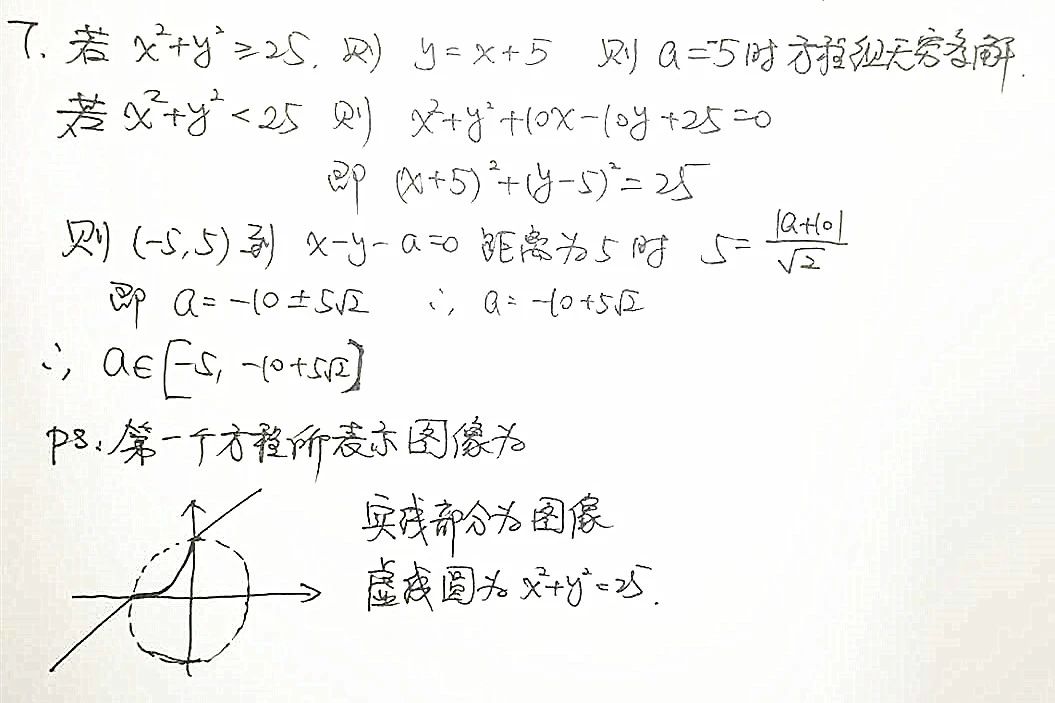 7. 若 x²+y²≥25. 则 y=x+5 则 a=-5时方程组无穷多解.
若 x²+y²<25 则 x²+y²+10x-10y+25=0
即 (x+5)²+(y-5)²=25
则 (-5,5) 到 x-y-a=0 距离为5时 5=|a+10|/√2
即 a=-10±5√2 ∴ a=-10+5√2
∴ a∈[-5, -10+5√2]
ps: 第一个方程所表示图像为
实线部分为图像
虚线圆为 x²+y²=25.